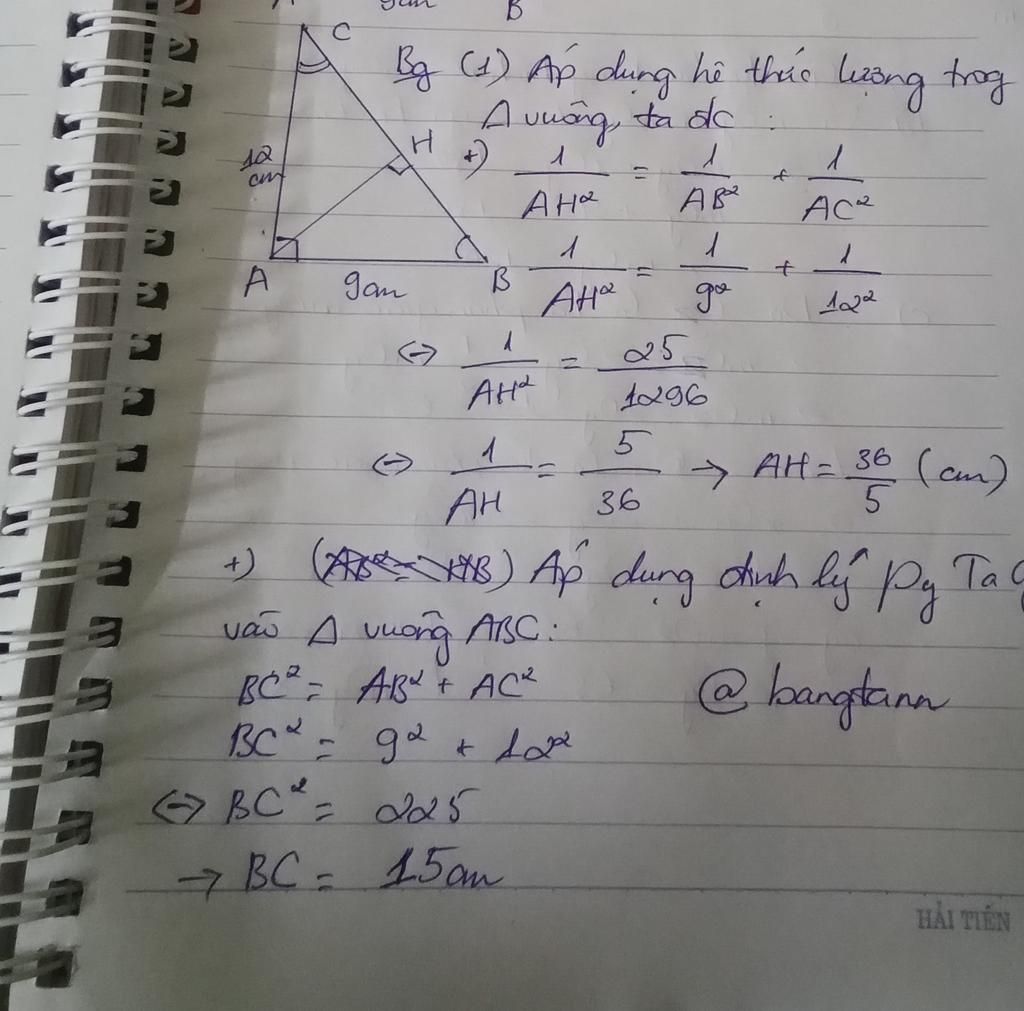 B
C
Bg (1) Áp dụng hệ thức lượng trog
Δ vuông, ta đc :
12
cm
H
+) 1/AH² = 1/AB² + 1/AC²
A
9cm
B
1/AH² = 1/9² + 1/12²
<-> 1/AH² = 25/1296
<-> 1/AH = 5/36 -> AH = 36/5 (cm)
+) Áp dụng định lý Py Ta
vào Δ vuông ABC:
BC² = AB² + AC²
@ bangtann
BC² = 9² + 12²
<-> BC² = 225
-> BC = 15cm
HẢI TIẾN